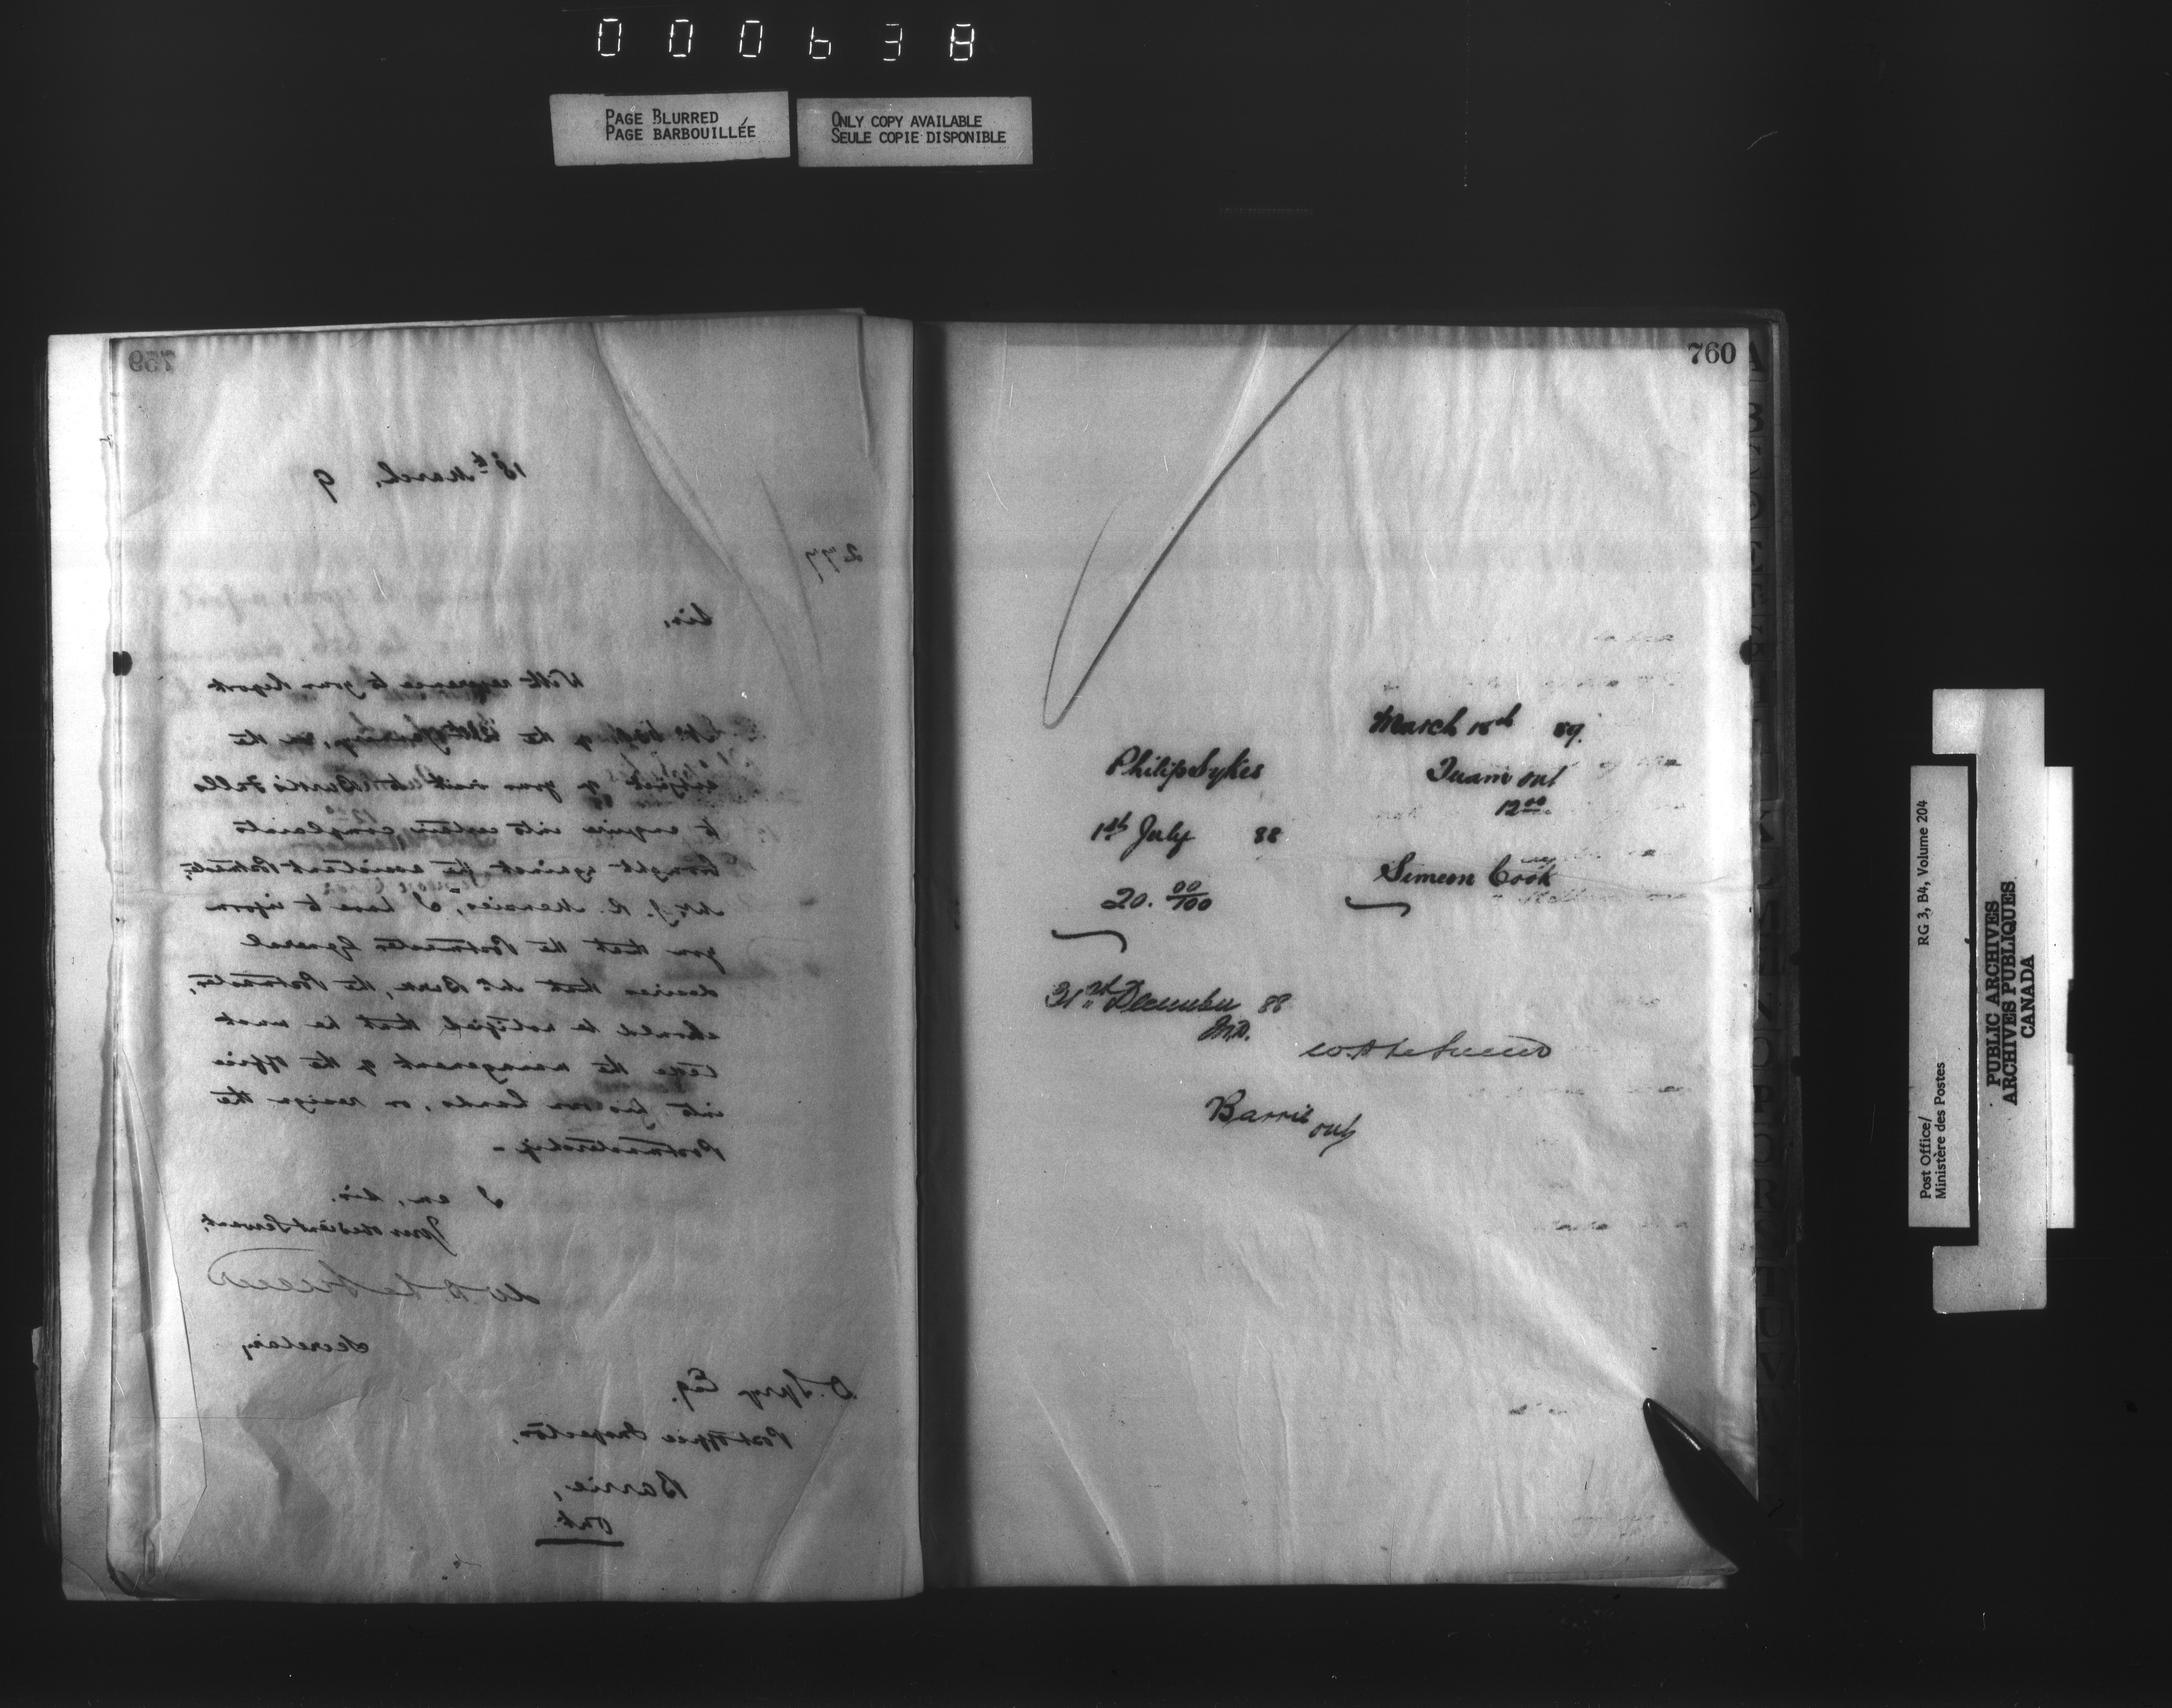 000638
PAGE BLURRED
PAGE BARBOUILLÉE
ONLY COPY AVAILABLE
SEULE COPIE DISPONIBLE
759
18th March, 9
277
Sir,
With reference to your Report
of the
subject of your visit to Burk's Falls
to enquire into certain complaints
brought against the assistant Postmaster,
Mr. J. R. Menzies, I have to inform
you that the Postmaster General
desires that Mr Burk, the Postmaster,
should be notified that he must
take the management of the Office
into his own hands, or resign the
Postmastership -
I am, Sir,
Your obedient Servant,
W. D. LeSueur
Secretary
D. Spry Esq.
Post Office Inspector,
Barrie,
Ont.
760
March 18th 89.
Philip Sykes
Tuam Ont
12 00
1st July 88
Simeon Cook
20. 00/100
31st December 88
W D LeSueur
Barrie
Ont
Post Office/
Ministère des Postes
RG 3, B4, Volume 204
PUBLIC ARCHIVES
ARCHIVES PUBLIQUES
CANADA